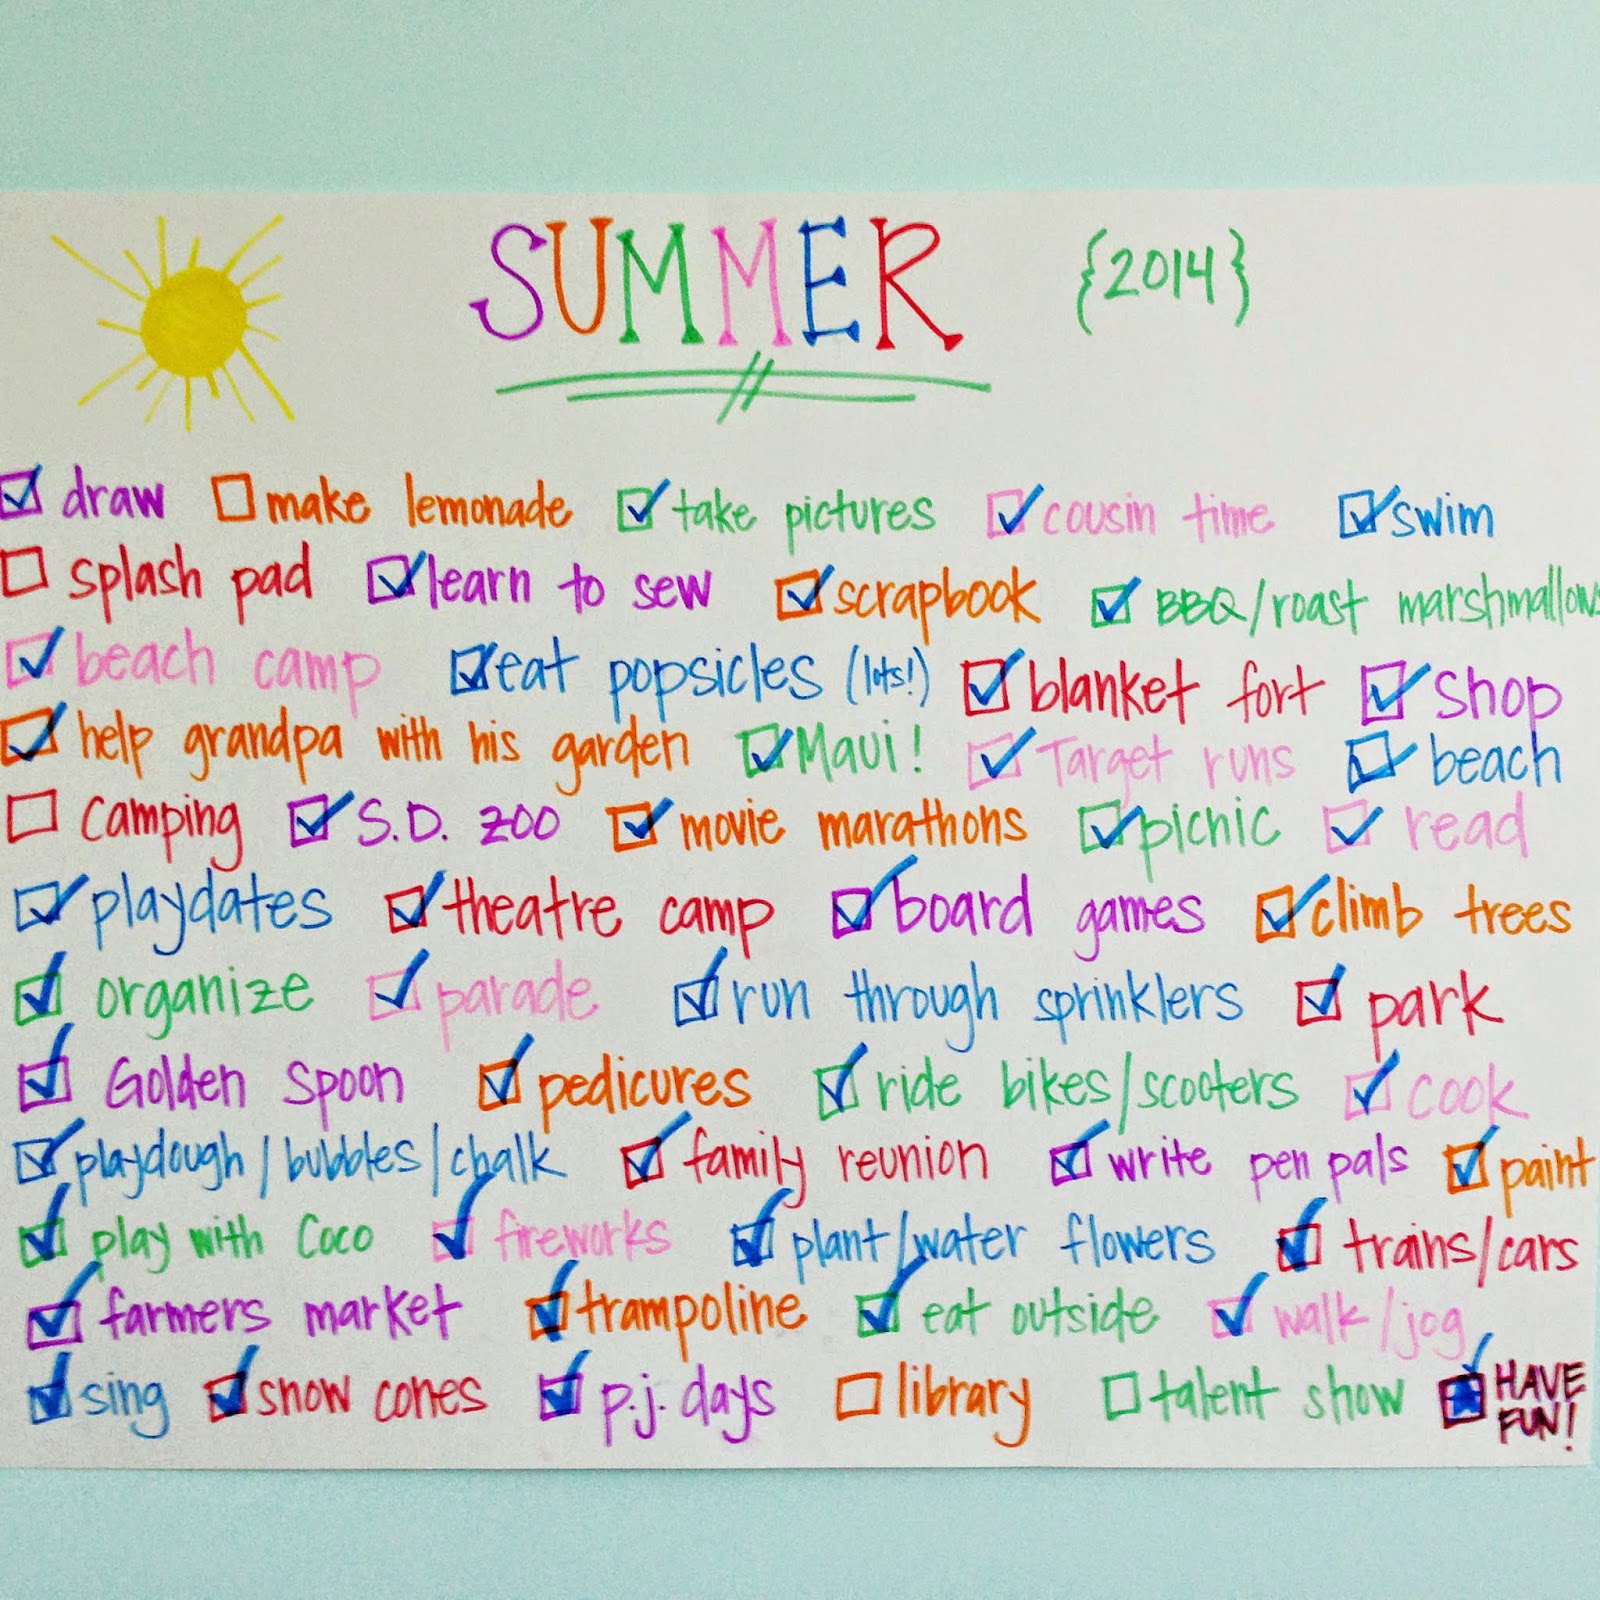 SUMMER {2014}
draw make lemonade take pictures cousin time swim
splash pad learn to sew scrapbook BBQ/roast marshmallows
beach camp eat popsicles (lots!) blanket fort shop
help grandpa with his garden Maui! Target runs beach
camping S.D. ZOO movie marathons picnic read
playdates theatre camp board games climb trees
organize parade run through sprinklers park
Golden Spoon pedicures ride bikes/scooters cook
playdough/bubbles/chalk family reunion write pen pals paint
play with Coco fireworks plant/water flowers trains/cars
farmers market trampoline eat outside walk/jog
sing snow cones p.j. days library talent show HAVE
FUN!